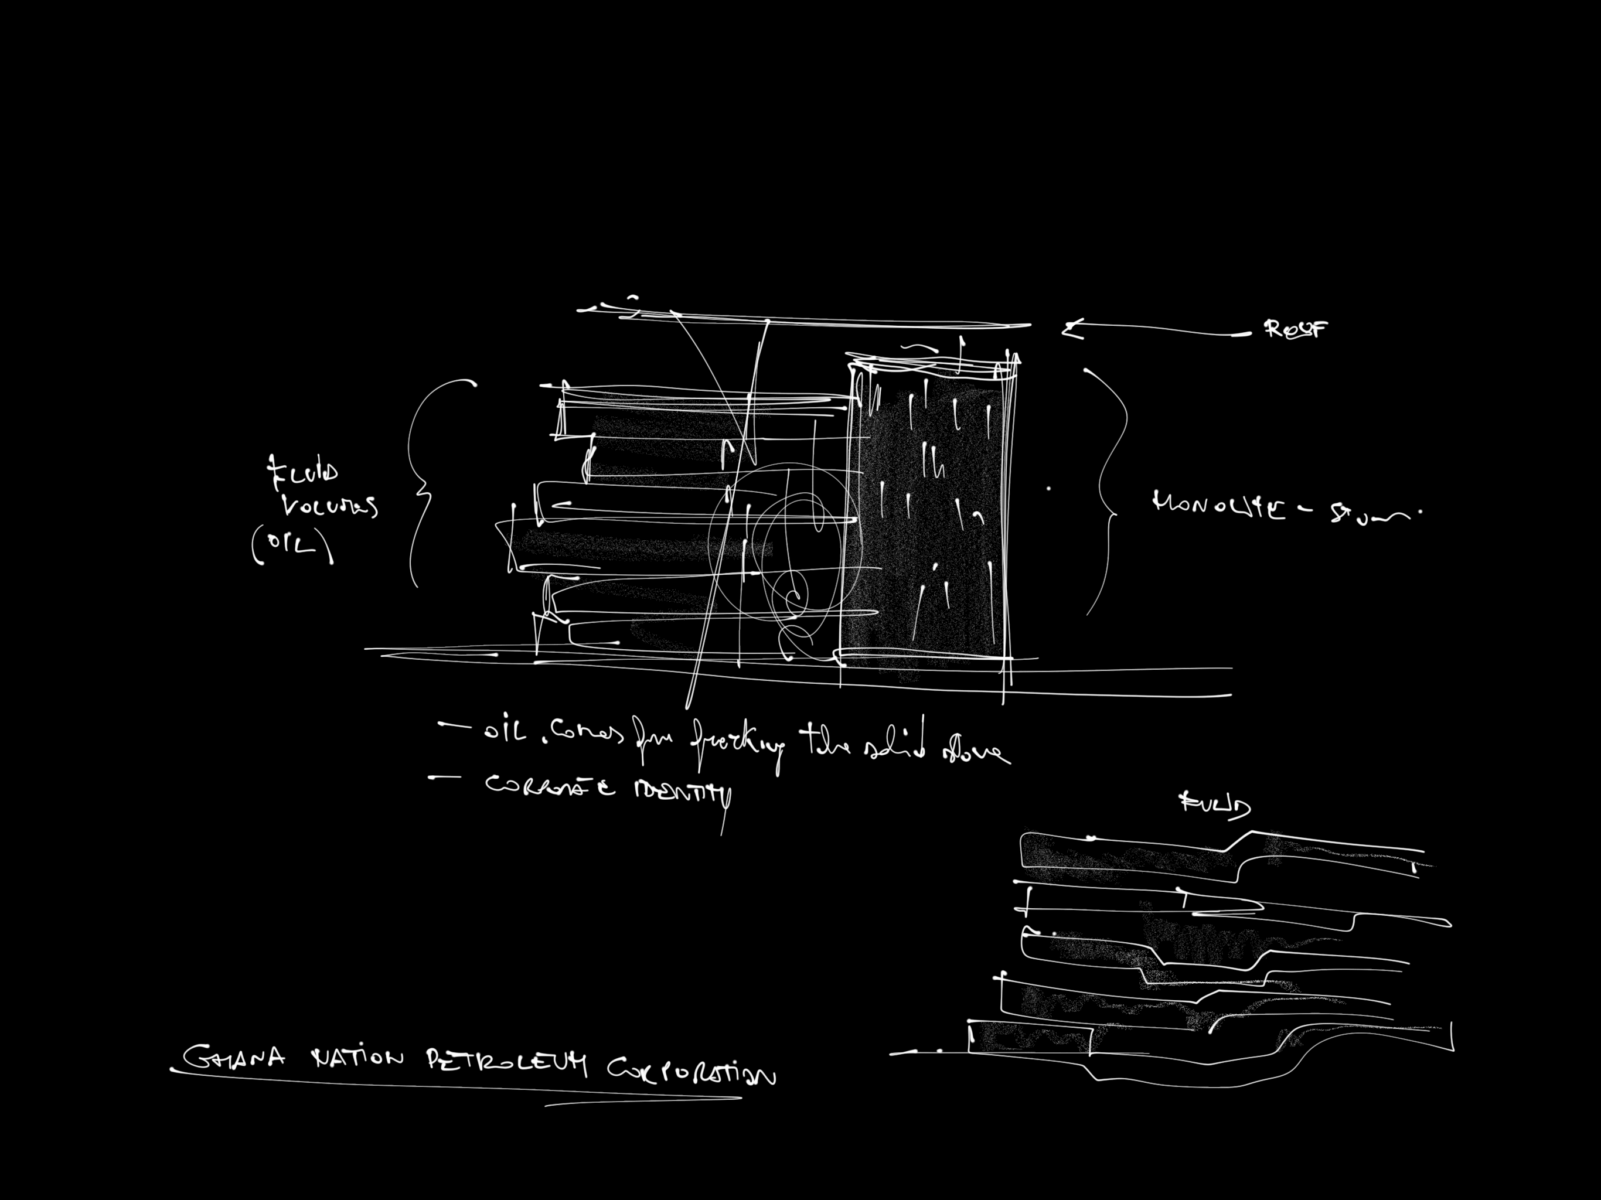 ROOF
FLUID
VOLUMES
(OIL)
MONOLITE -
- OIL. Comes from fracking the solid stone
- CORPORATE IDENTITY
FLUID
GHANA NATION PETROLEUM CORPORATION